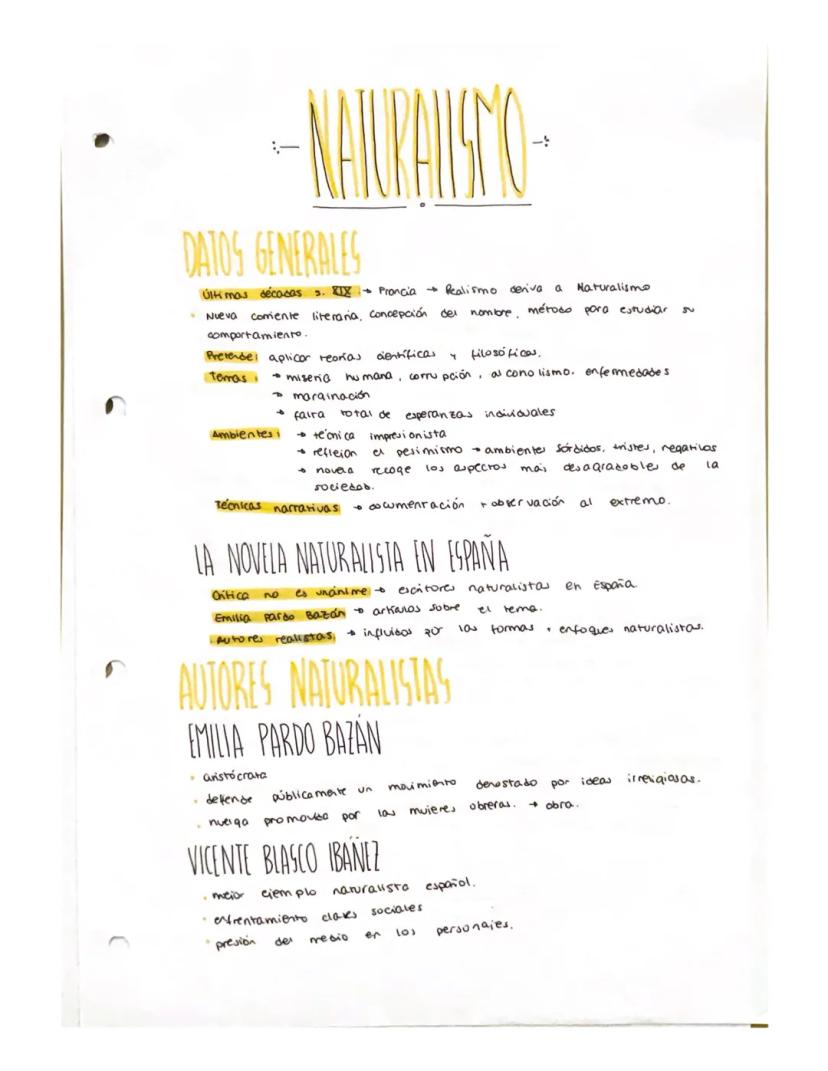 NATURALISMO
DATOS GENERALES
Últimas décadas s. XIX → Francia → Realismo deriva a Naturalismo
• Nueva corriente literaria, concepción del hombre, método para estudiar su
comportamiento.
Pretende: aplicar teorías científicas y filosóficas.
Temas: → miseria humana, corrupción, alcoholismo, enfermedades
→ marginación
→ falta total de esperanzas individuales
Ambientes: → técnica impresionista
→ reflejan el pesimismo → ambientes sórdidos, tristes, negativos
→ novela recoge los aspectos más desagradables de la
sociedad.
Técnicas narrativas → documentación + observación al extremo.
LA NOVELA NATURALISTA EN ESPAÑA
Crítica no es unánime → escritores naturalistas en España.
Emilia Pardo Bazán → artículos sobre el tema.
Autores realistas → influidos por las formas + enfoques naturalistas.
AUTORES NATURALISTAS
EMILIA PARDO BAZÁN
• aristócrata
• defende públicamente un movimiento denostado por ideas irreligiosas.
• huelga promovida por las mujeres obreras. → obra.
VICENTE BLASCO IBÁÑEZ
• mejor ejemplo naturalista español.
• enfrentamiento clases sociales
• presión del medio en los personajes.